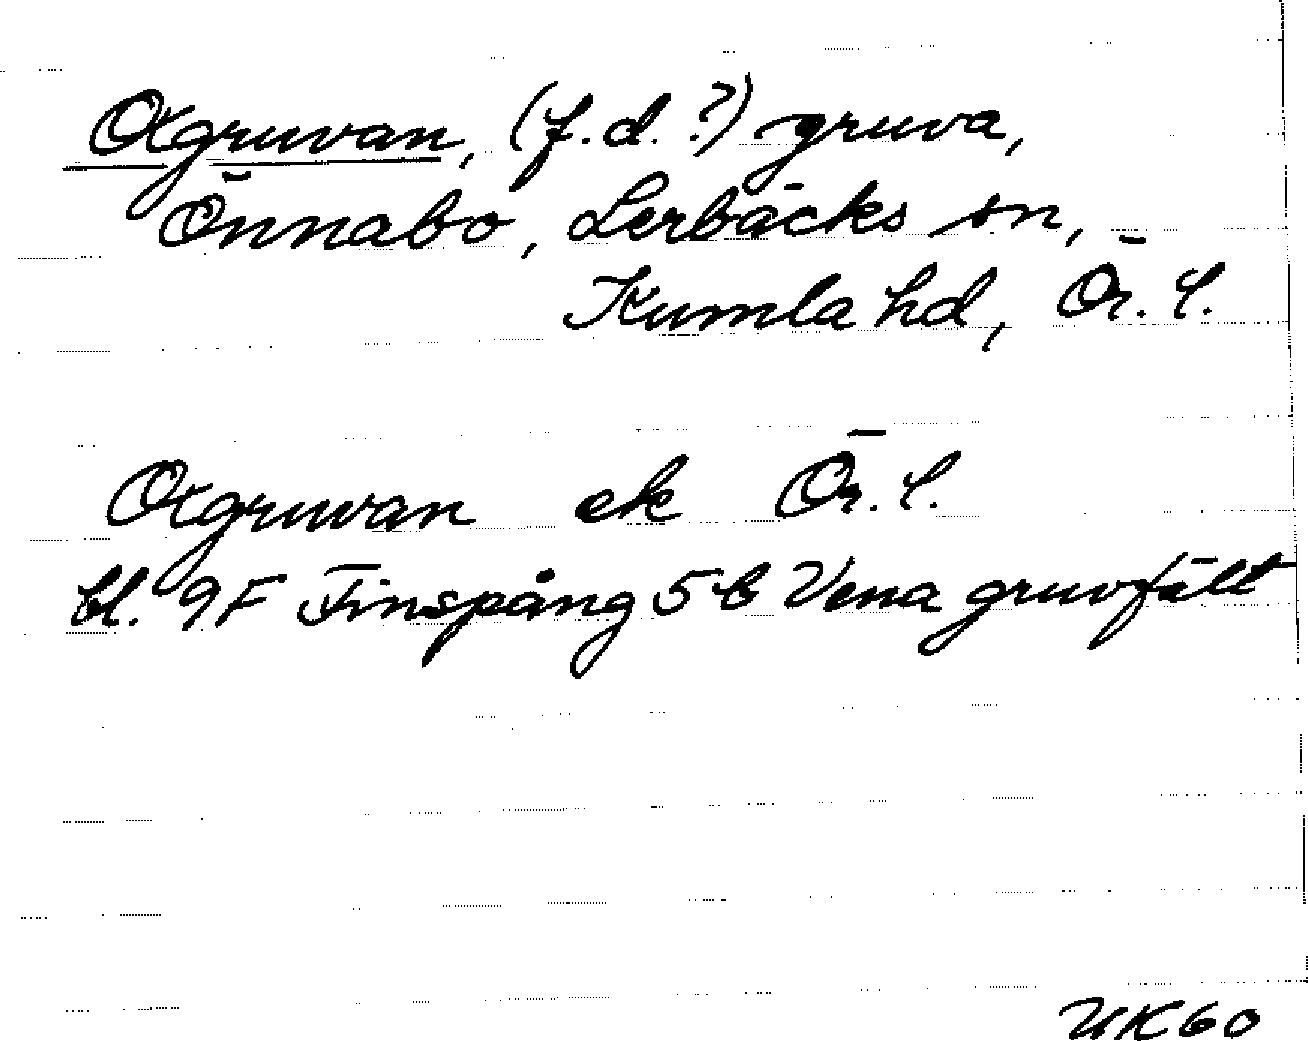 Oxgruvan, (f.d.?) gruva,
Önnabo, Lerbäcks sn,
Kumla hd, Ör. l.
Oxgruvan ek Ör. l.
bl. 9F Finspång 5b Vena gruvfält
UK60